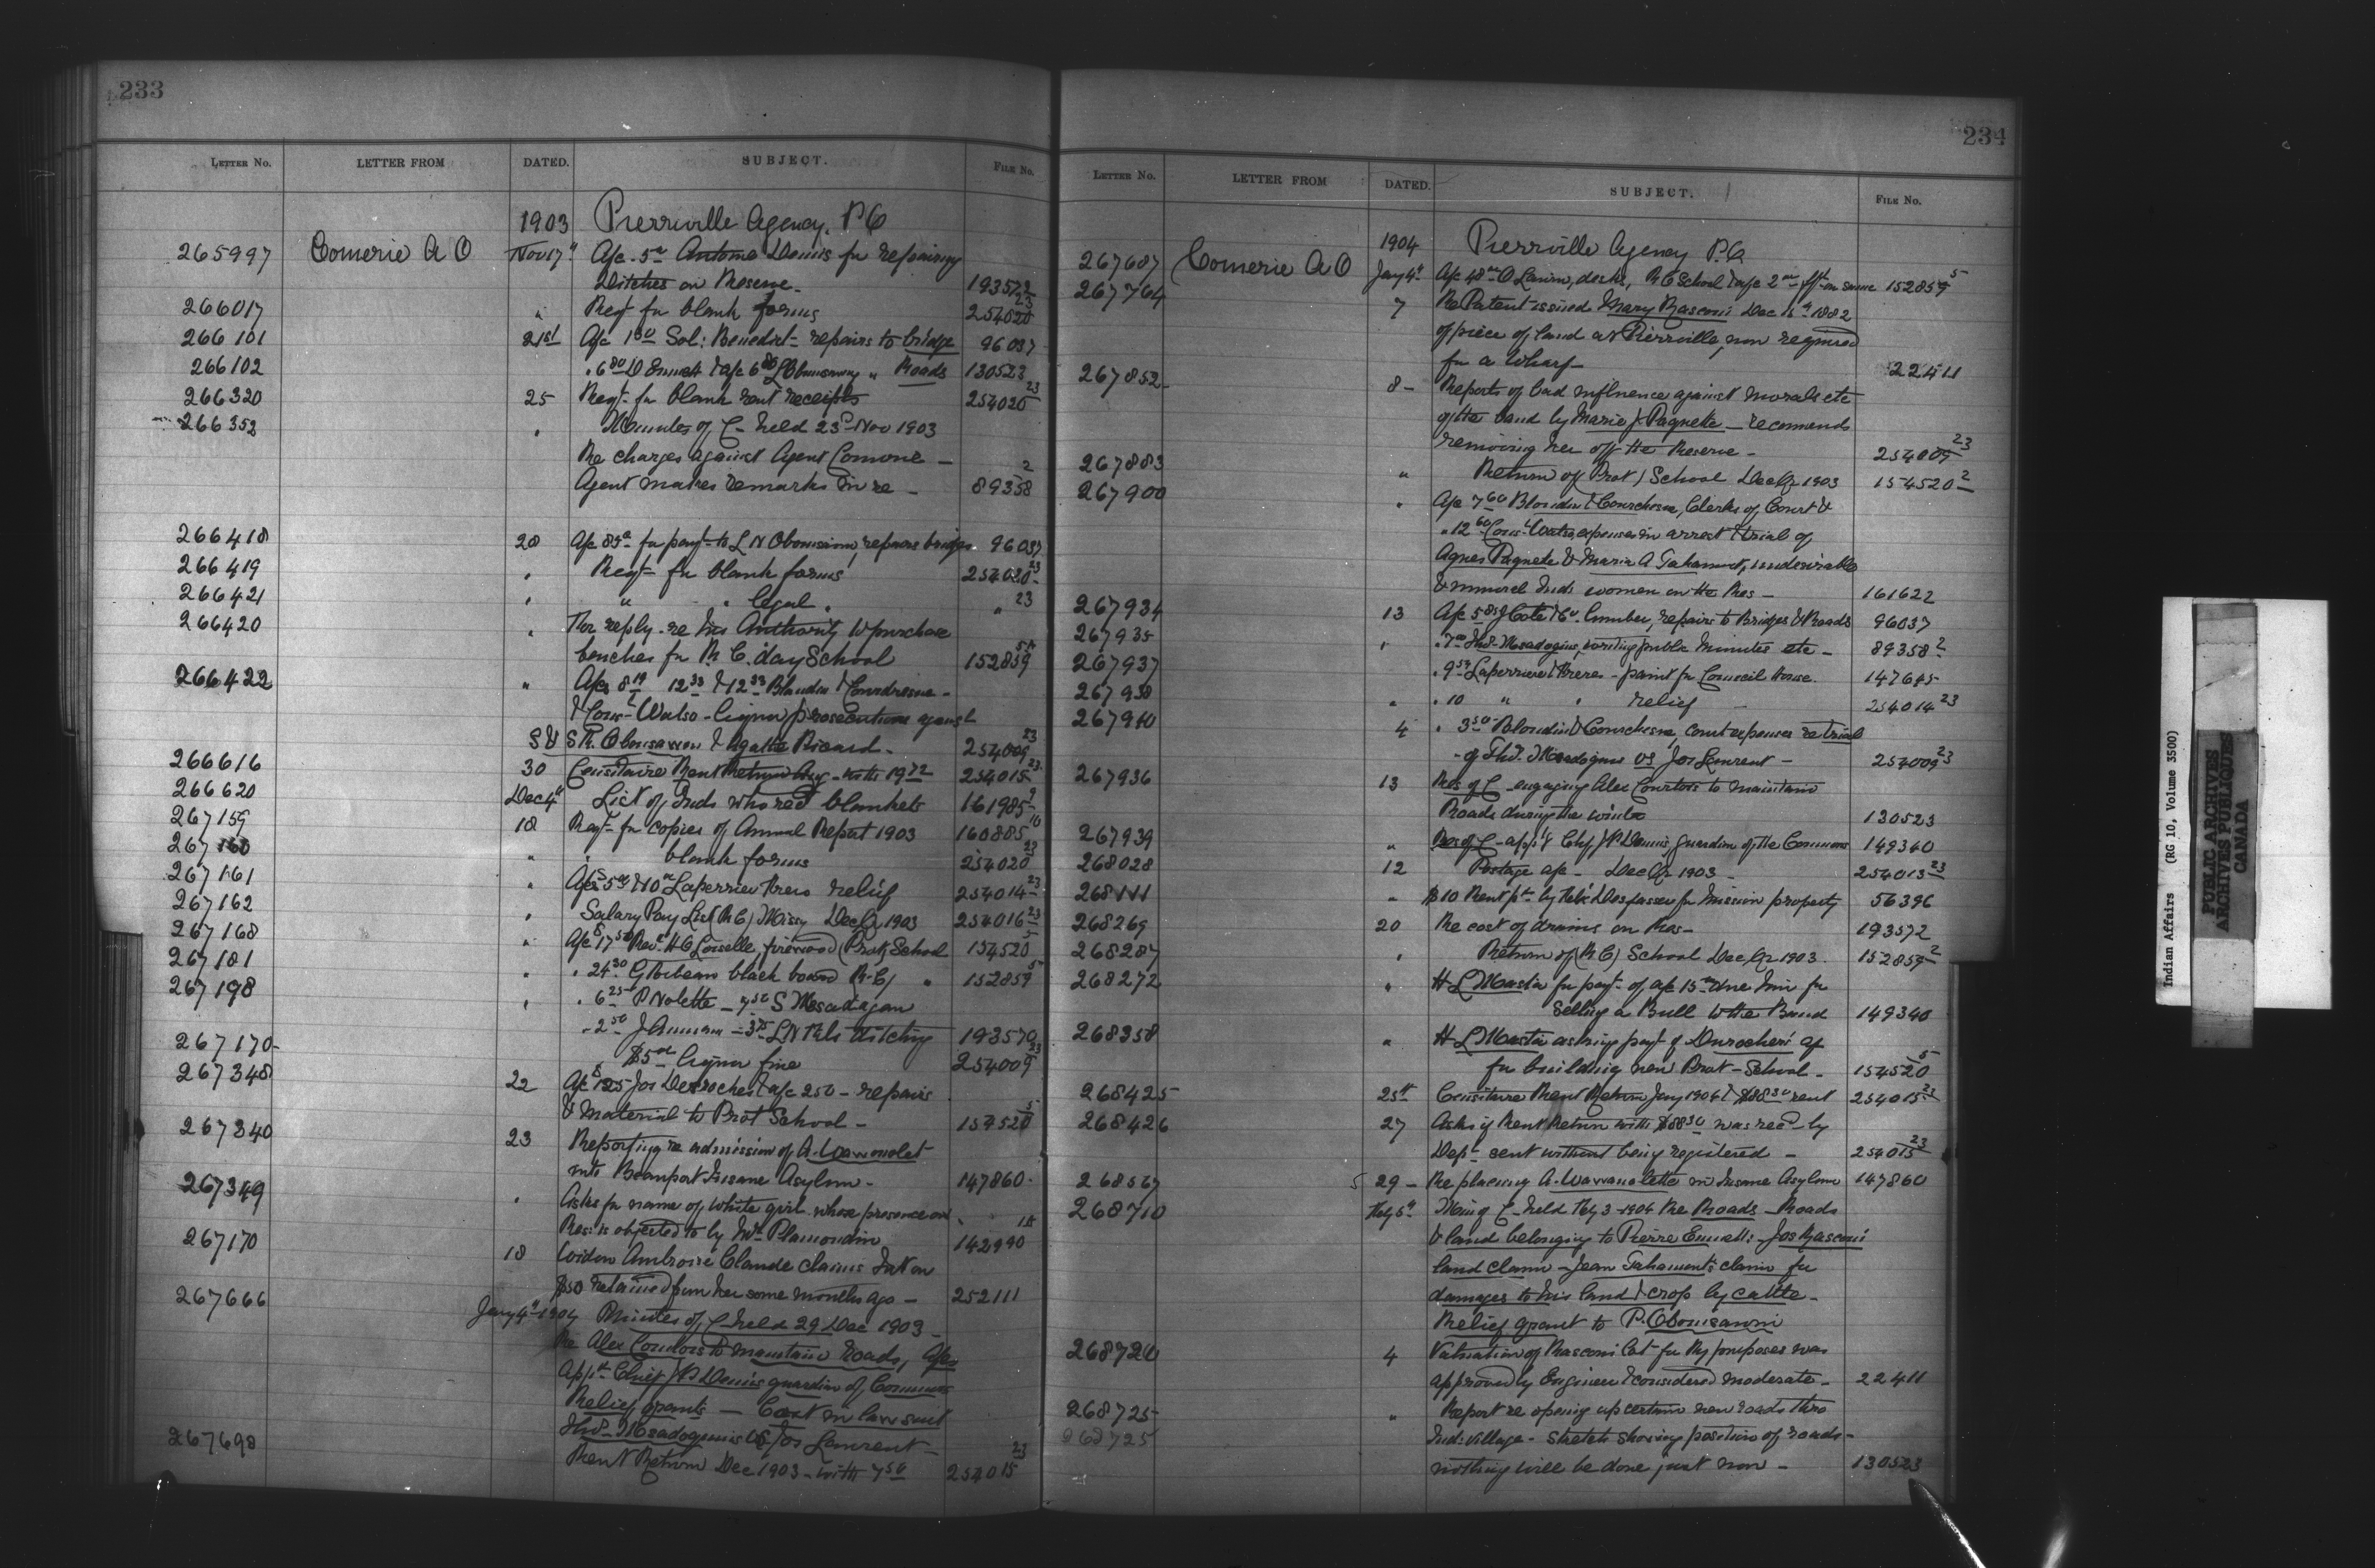 233
LETTER NO. LETTER FROM DATED. SUBJECT. FILE NO.
1903 Pierrville Agency, P.Q
265997 Comerie A O Nov 17" A/c 5oo Antoine Denis for repairing
Ditches on Reserve- 193572
266017 " Reqt for blank forms 254020 23
266101 21st A/c 150 Sol: Benedict - repairs to bridge 96037
266102 " Roads 130523
266320 25 Reqt for blank rent receipts 254020 23
266352 " Minutes of C- held 23d Nov 1903
Re charges against Agent Comerie -
Agent makes remarks in re - 89358 2
266418 28 A/c for payt to L N Obomsawin, repairs bridges 96037
266419 " Reqt for blank forms 254020 23
266421 " " " legal " " 23
266420 " For reply re his Authority to purchase
benches for R C. day School 152859
266422 " A/cs 8 19 12 33 & 12 33 Blondin & Courchesne -
& Cons- Watso - liquor prosecutions against
Obomsawin & Agatha Picard- 254009 23
266616 30 Censitaire Rent Return Aug - with 19 72 254015 23
266620 Dec 4" List of Inds who recd blankets 161985 2
267159 18 Reqt for copies of Annual Report 1903 160885 10
267160 " " blank forms 254020 23
267161 " A/cs 5oo & 10oo Laperriere Freres relief 254014 23
267162 " Salary Pay List (R C) Missy Dec Qr 1903 254016 23
267168 " A/c 17 50 Rev. H O Loiselle, firewood (Prot) School 154520 5
267181 " " 24 30 G Rebeau black board (R.C) " 152859 5
267198 " " 6 25 P Nolette - 7 50 S Msadoques
- 2 50 J Annance - 3 75 L N ditching 193570
267170- $5oo liquor fine 254009 23
267348 22 A/c $125 Jos Desroches & a/c 250 - repairs
& material to Prot School - 154520 5
267340 23 Reporting re admission of A. Wawanolet
into Beauport Insane Asylum - 147860
267349 " Asks for name of white girl whose presence on
Res: is objected to by Mr Plamondin 142990 15
267170 18 Widow Ambroise Claude claims Int on
$50 retained from her some months ago - 252111
267666 Jany 4" 1904 Minutes of C- held 29 Dec 1903 -
Re Alex Courtois to maintain roads, A/cs
App't Chief J P Denis guardian of Commons
Relief grants - Cost in law suit
Thos- Msadoquis vs Jos Laurent -
267698 Rent Return Dec 1903 - with 7 50 254015 23
234
LETTER NO. LETTER FROM DATED. SUBJECT. FILE NO.
1904 Pierrville Agency P.Q.
267687 Comerie A O Jany 4" A/c 48oo O Lanim, desks, R C School & a/c 2oo frt on same 152859 5
267764 7 Re Patent issued Mary Masconi Dec 1882
of piece of land at Pierrville, now required
for a wharf- 22411
267852 8- Reports of bad influence against morals etc
of the band by Marie J Paquette - recommends
removing her off the Reserve - 254009 23
267883 " Return of (Prot) School Dec Qr 1903 154520 2
267900 " A/c 7 60 Blondin & Courchesne, Clerks of Court &
" 12 60 Cons- Watso expenses in arrest & trial of
Agnes Paquette & Maria A Tahamont, undesirable
& immoral Inds women on the Res - 161622
267934 13 A/c 5 85 J Cote & 6oo lumber, repairs to Bridges & Roads 96037
267935 " " 7oo Thos- Msadoquis, writing public minutes etc - 89358 2
267937 " 9 53 Laperriere & Frere - paint for Council House. 147645
267938 " " 10 " " relief - 254014 23
267940 4 " 3 50 Blondin & Courchesne, court expenses re trial
- of Thos. Msadoquis vs Jos Laurent - 254009 23
267936 13 Res of C - engaging Alex Courtois to maintain
Roads during the winter 130523
267939 " Res of C - app'g Chf J P Denis, guardian of the Commons 149340
268028 12 Postage a/c - Dec Qr 1903 - 254013 23
268111 " $10 Rent pd by for mission property 56396
268269 20 Re cost of drains on Res - 193572
268287 " Return of (R C) School Dec Qr 1903. 152859 2
268272 " H L Masta for payt of a/c 15oo due him for
selling a Bull to the Band 149340
268358 " H L Masta asking payt of Durocher's a/c
for building new Prot - School - 154520 5
268425 25th Censitaire Rent Return Jany 1904 & $88 30 rent 254015 23
268426 27 Asks if Rent Return with $88 30 was recd by
Dept sent without being registered - 254015 23
268567 29 - Re placing A. Wawanolette in Insane Asylum 147860
268710 Feby 5" Mins of C - held Feby 3 - 1904 Re Roads - Roads
& land belonging to Pierre Emmett: Jos Masconi
land claim - Jean Tahamont's claim for
damages to his land & crop by cattle -
Relief grant to P. Obomsawin
268720 4 Valuation of Masconi Lot for Ry purposes was
approved by Engineer & considered moderate - 22411
268725 " Report re opening up certain new roads thro
268725 Ind: village - sketch showing position of roads -
nothing will be done just now - 130523
Indian Affairs (RG 10, Volume 3500)
PUBLIC ARCHIVES
ARCHIVES PUBLIQUES
CANADA